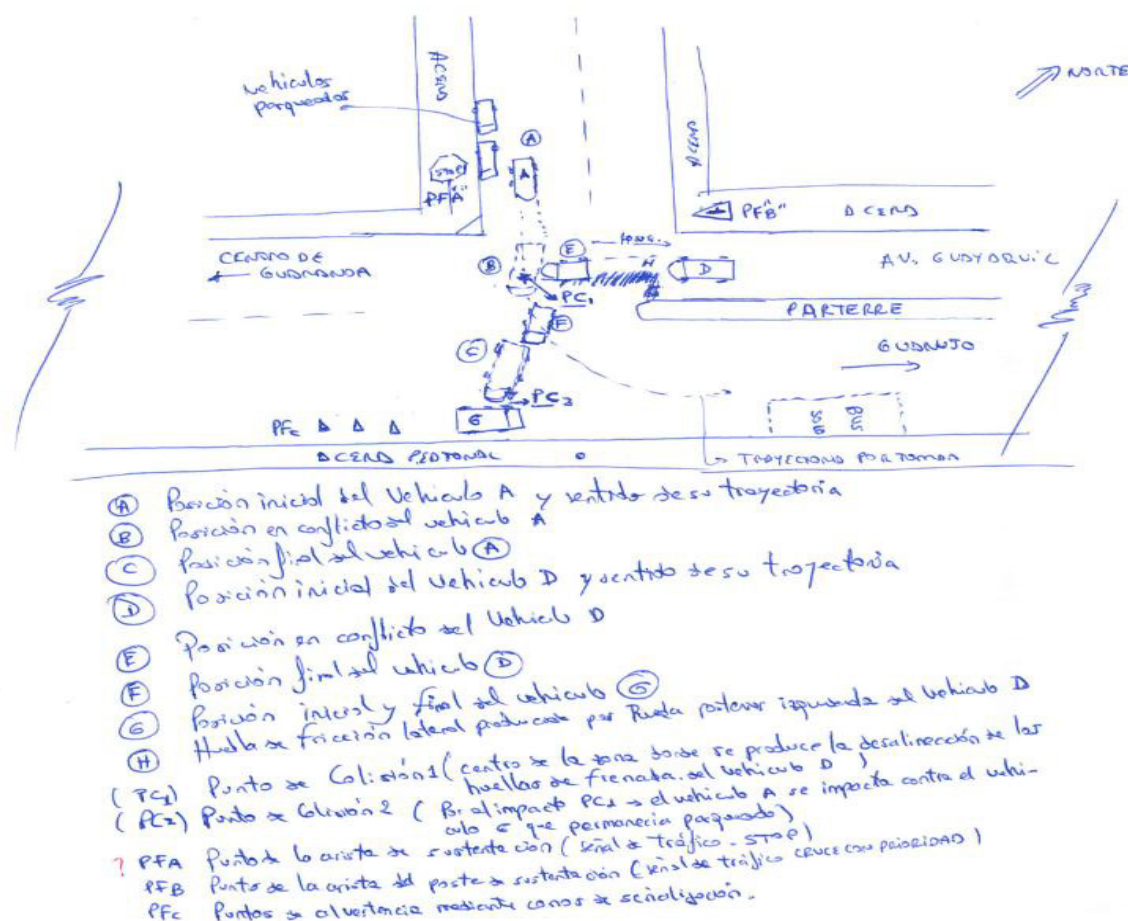 NORTE
ACERA
vehiculos
parqueados
A
A
STOP
PF"A"
ACERA
PF"B"
ACERA
CENTRO DE
GUARANDA
B
E
D
H
AV. GUAYAQUIL
PC1
PARTERRE
F
C
GUANUJO
PC2
G
PFc
BUS
ACERA PEATONAL
TRAYECTORIA POR TOMAR
A Posición inicial del Vehiculo A y sentido de su trayectoria
B Posición en conflicto del vehiculo A
C Posición final del vehiculo A
D Posición inicial del Vehiculo D y sentido de su trayectoria
E Posición en conflicto del Vehiculo D
F Posición final del vehiculo D
G Posición inicial y final del vehiculo G
H Huella de fricción lateral producida por Rueda posterior izquierda del Vehiculo D
(PC1) Punto de Colisión 1 (centro de la zona donde se produce la desalineación de las
huellas de frenada del vehiculo D)
(PC2) Punto de Colisión 2 ( al impacto PC1 → el vehiculo A se impacta contra el vehi-
culo G que permanecia parqueado)
? PFA Punto de la arista de sustentación (señal de tráfico - STOP)
PFB Punto de la arista del poste de sustentación (señal de tráfico CRUCE CON PRIORIDAD)
PFc Puntos de advertencia mediante conos de señalización.